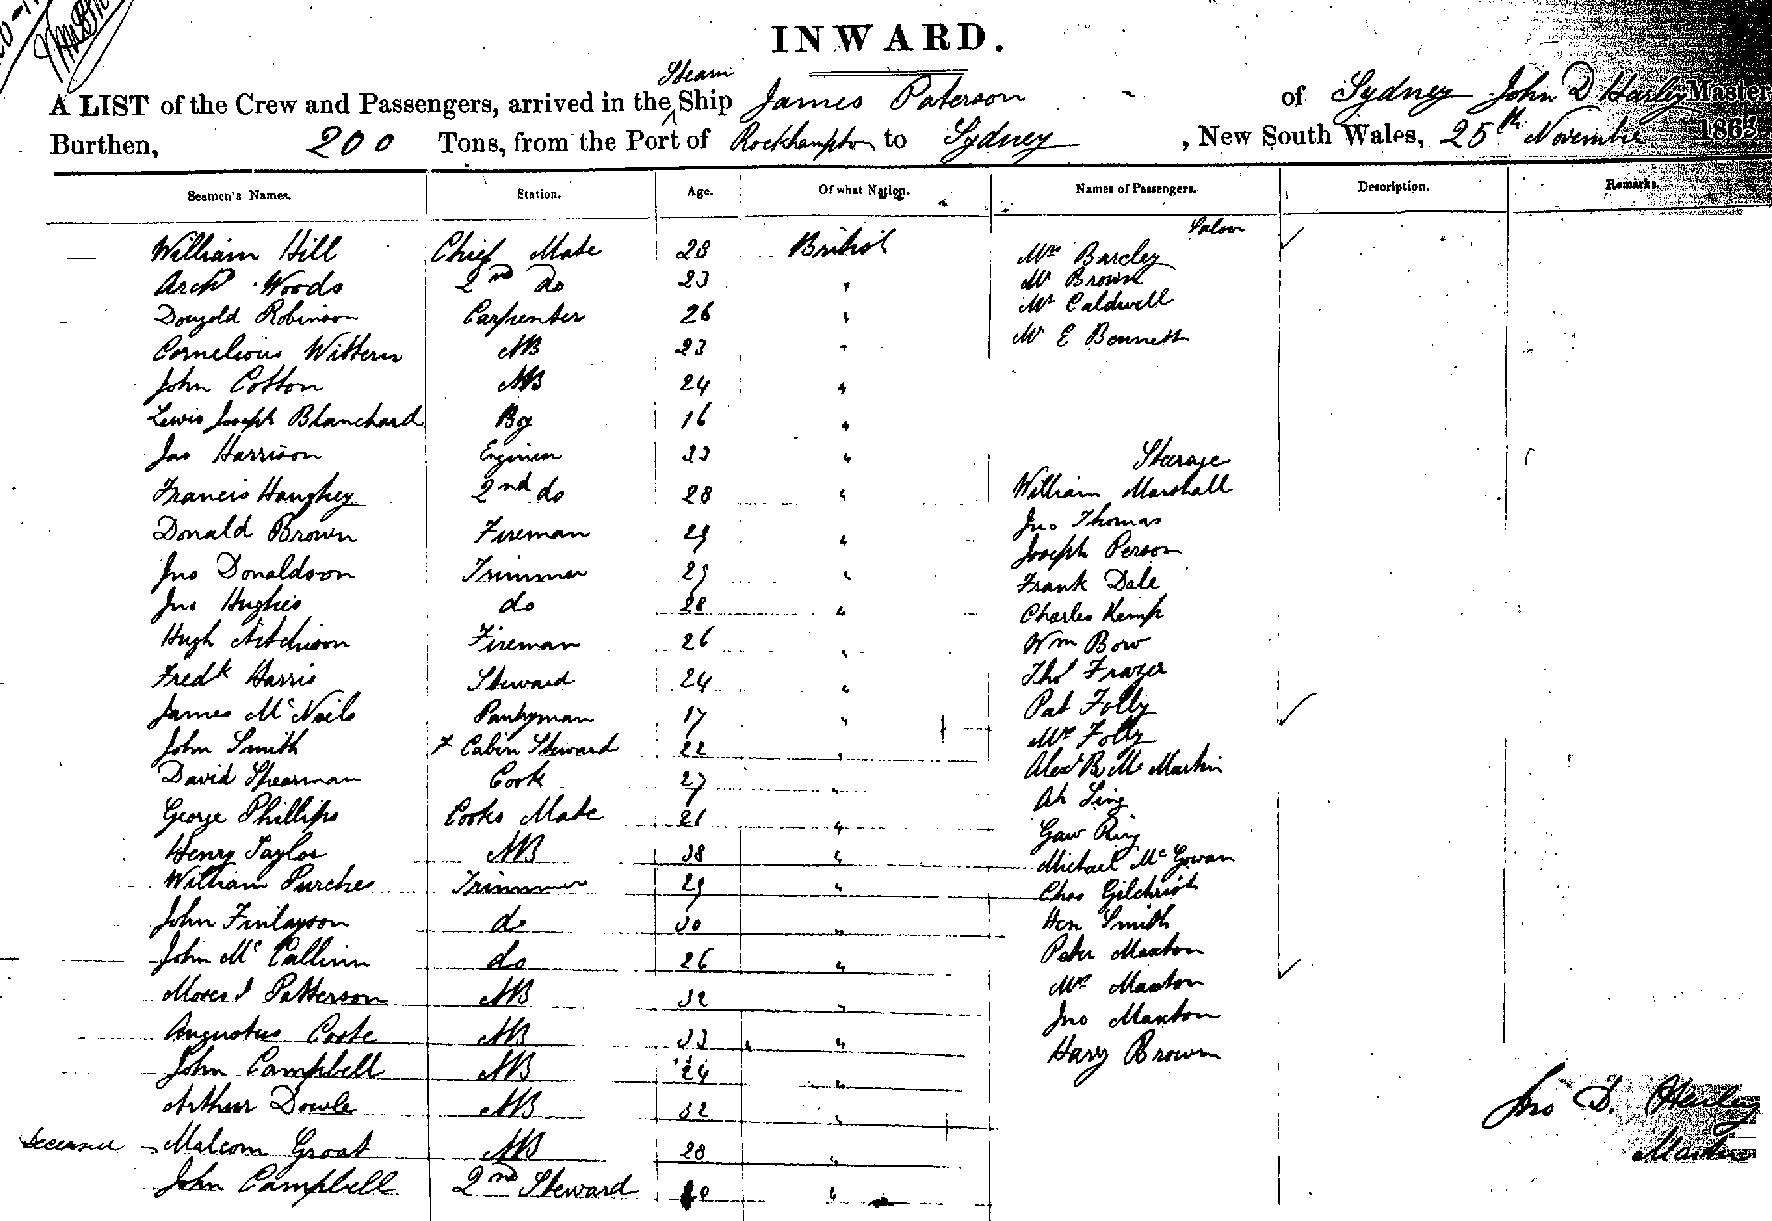 INWARD.
Steam
A LIST of the Crew and Passengers, arrived in the Ship James Paterson of Sydney John D Master
Burthen, 200 Tons, from the Port of Rockhampton to Sydney, New South Wales, 25th November 1863
Seamen's Names. Station. Age. Of what Nation. Names of Passengers. Description. Remarks.
Saloon
William Hill Chief Mate 28 British Mrs Barcley
Archd Woods 2nd Do 23 " Mr Brown
Dougold Robinson Carpenter 26 " Mr Caldwell
Cornelious Wittern AB 23 " Mr E Bennett
John Cotton AB 24 "
Lewis Joseph Blanchard Boy 16 "
Jas Harrison Engineer 33 " Steerage
Francis Haughey 2nd do 28 " William Marshall
Donald Brown Fireman 29 " Jno Thomas
Joseph Person
Jno Donaldson Trimmer 29 " Frank Dale
Jno Hughes do 28 " Charles Kemp
Hugh Aitchison Fireman 26 " Wm Bow
Fredk Harris Steward 24 " Thos Frazer
James McNeils Pantryman 17 " Pat Folly
John Smith F Cabin Steward 22 " Mrs Folly
David Shearman Cook 27 " Alexr B Mc Martin
George Phillips Cooks Mate 21 " Ah Sing
Gaw Ring
Henry Taylor AB 38 " Michael McGowan
William Purches Trimmer 29 " Chas Gilchrist
John Finlayson do 30 " Hen Smith
John McCallum do 26 " Peter Maxton
Moses J Patterson AB 32 " Mrs Maxton
Augustus Coote AB 33 " Jno Maxton
John Campbell AB 24 " Harry Brown
Arthur Dowle AB 32 "
Deceased Malcom Groat AB 28 "
John Campbell 2nd Steward 40 "
Jno D.
Master